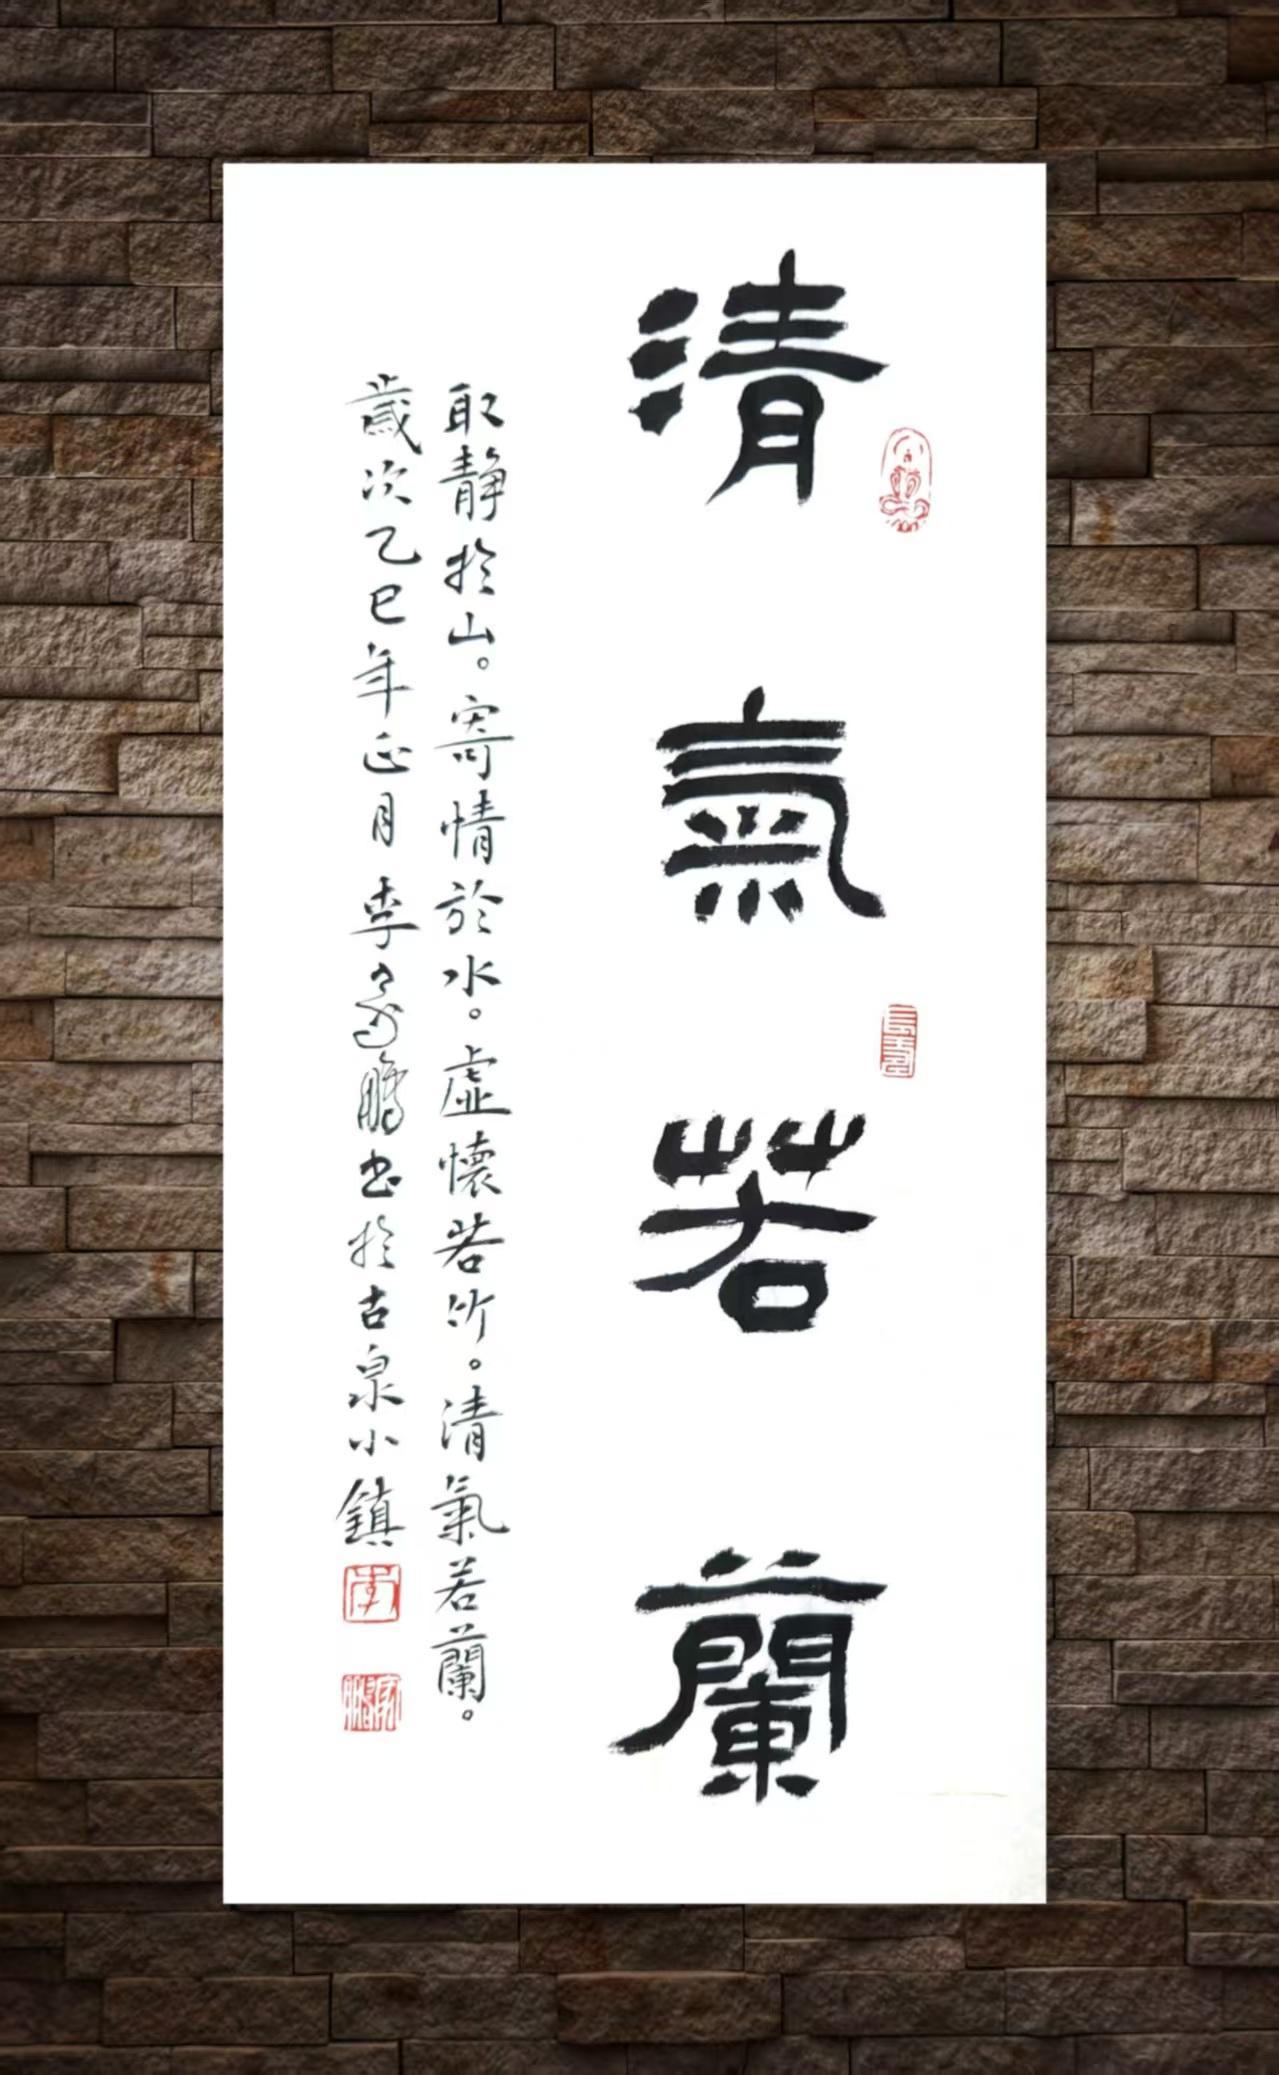 清氣若蘭
取静於山。寄情於水。虛懷若竹。清氣若蘭。
歲次乙巳年正月李家鵬书於古泉小鎮
長壽
李